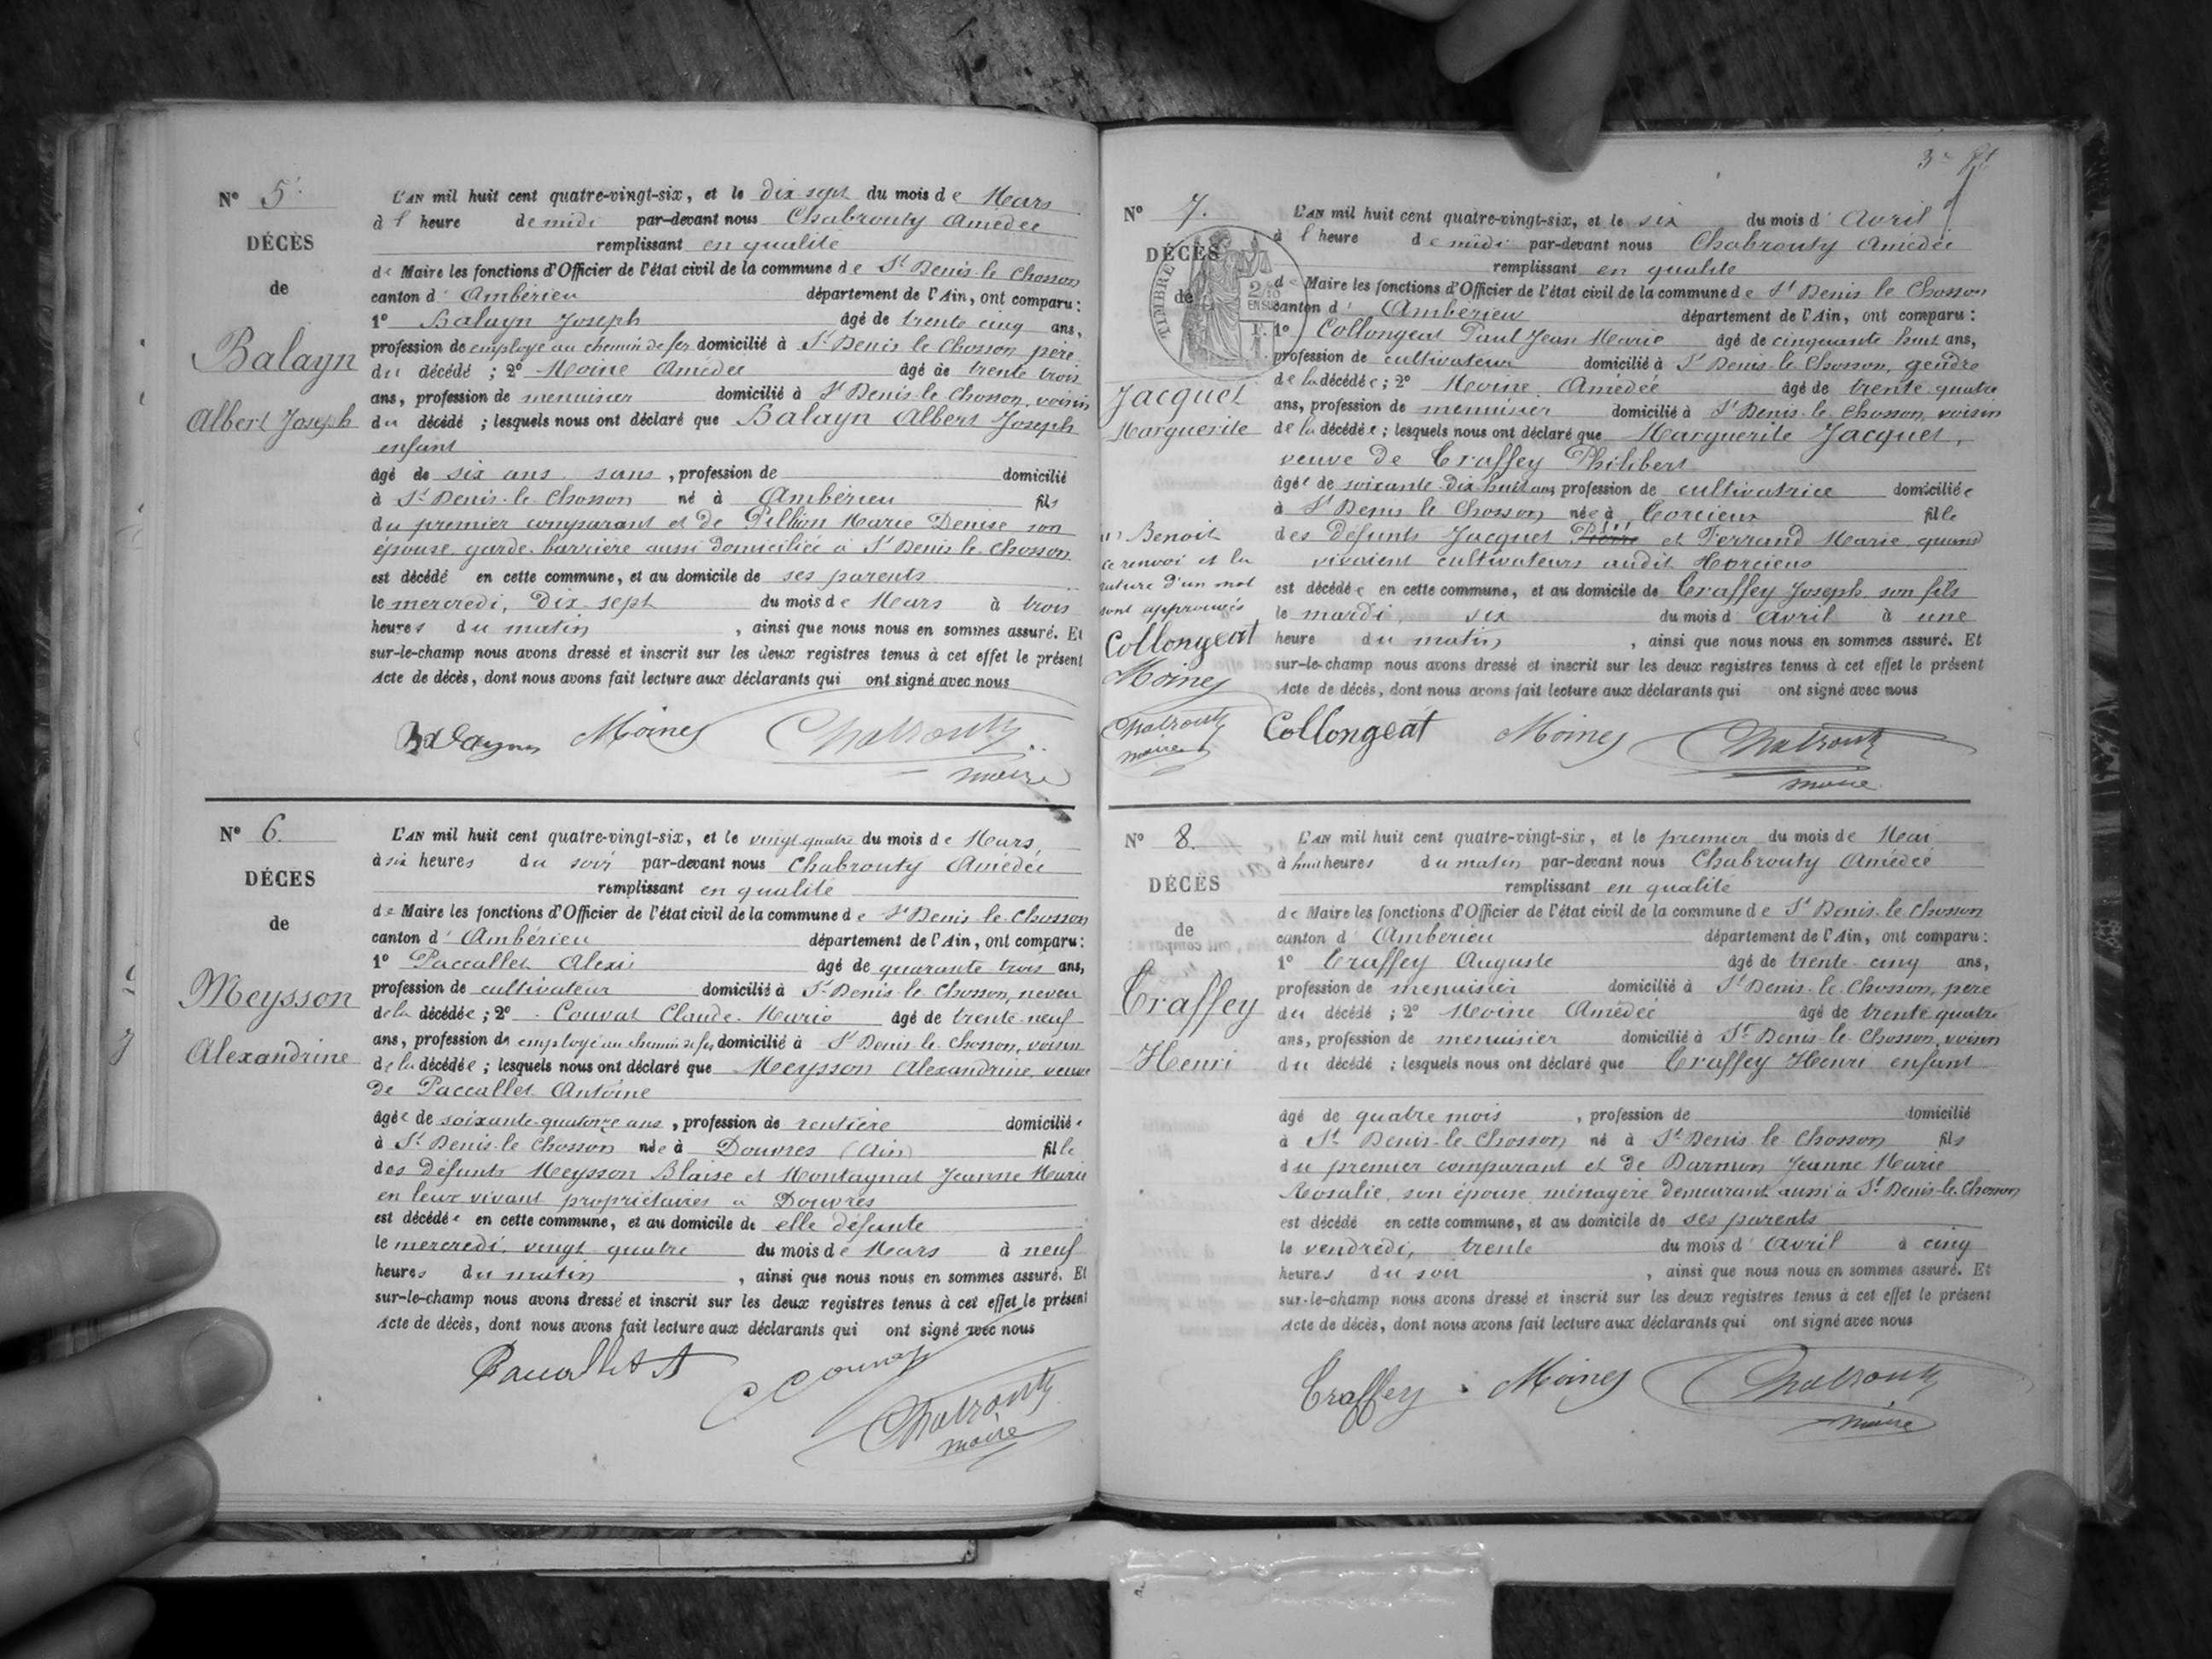 N° 5.
DÉCÈS
de
Balayn
Albert Joseph
L'AN mil huit cent quatre-vingt-six, et le dix sept du mois de Mars
à l heure de midi par-devant nous Chabrouty Amédée
remplissant en qualité
de Maire les fonctions d'Officier de l'état civil de la commune de St Denis-le Chosson
canton d' Ambérieu département de l'Ain, ont comparu:
1° Balayn Joseph âgé de trente cinq ans,
profession de employé au chemin de fer domicilié à St Denis le Chosson père
du décédé ; 2° Moine Amédée âgé de trente trois
ans, profession de menuisier domicilié à St Denis-le Chosson, voisin
du décédé ; lesquels nous ont déclaré que Balayn Albert Joseph
enfant
âgé de six ans sans , profession de domicilié
à St Denis-le Chosson né à Ambérieu fils
du premier comparant et de Pillion Marie Denise son
épouse garde-barrière aussi domiciliée à St Denis le Chosson
est décédé en cette commune, et au domicile de ses parents
le mercredi, dix sept du mois de Mars à trois
heures du matin , ainsi que nous nous en sommes assuré. Et
sur-le-champ nous avons dressé et inscrit sur les deux registres tenus à cet effet le présent
Acte de décès, dont nous avons fait lecture aux déclarants qui ont signé avec nous
Balayn Moine Chabrouty
maire
N° 6.
DÉCES
de
Meysson
Alexandrine
L'AN mil huit cent quatre-vingt-six, et le vingt quatre du mois de Mars,
à six heures du soir par-devant nous Chabrouty Amédée
remplissant en qualité
de Maire les fonctions d'Officier de l'état civil de la commune de St Denis le Chosson
canton d' Ambérieu département de l'Ain, ont comparu:
1° Paccallet Alexis âgé de quarante trois ans,
profession de cultivateur domicilié à St Denis le Chosson, neveu
de la décédée ; 2° Couvat Claude-Marie âgé de trente-neuf
ans, profession de employé au chemin de fer domicilié à St Denis le Chosson, voisin
de la décédée ; lesquels nous ont déclaré que Meysson Alexandrine, veuve
de Paccallet Antoine
âgée de soixante-quatorze ans , profession de rentière domiciliée
à St Denis-le Chosson née à Douvres (Ain) fille
des défunts Meysson Blaise et Montagnat Jeanne Marie
en leur vivant propriétaires à Douvres
est décédée en cette commune, et au domicile de elle défunte
le mercredi, vingt quatre du mois de Mars à neuf
heures du matin , ainsi que nous nous en sommes assuré. Et
sur-le-champ nous avons dressé et inscrit sur les deux registres tenus à cet effet le présent
Acte de décès, dont nous avons fait lecture aux déclarants qui ont signé avec nous
Paccallet A
Chabrouty
maire
N° 7.
DÉCÈS
de
TIMBRE
Jacquet
Marguerite
Benoit
ce renvoi et la
rature d'un mot
sont approuvés
Collongeat
Moine
Chabrouty
maire
L'AN mil huit cent quatre-vingt-six, et le six du mois d' Avril
à l heure de midi par-devant nous Chabrouty Amédée
remplissant en qualité
de Maire les fonctions d'Officier de l'état civil de la commune de St Denis le Chosson
canton d' Ambérieu département de l'Ain, ont comparu :
1° Collongeat Paul Jean Marie âgé de cinquante huit ans,
profession de cultivateur domicilié à St Denis-le Chosson, gendre
de la décédée ; 2° Moine Amédée âgé de trente-quatre
ans, profession de menuisier domicilié à St Denis-le Chosson, voisin
de la décédée ; lesquels nous ont déclaré que Marguerite Jacquet,
veuve de Traffey Philibert
âgée de soixante-dix-huit ans profession de cultivatrice domiciliée
à St Denis le Chosson née à Torcieu fille
des défunts Jacquet Pierre et Ferrand Marie quand
vivaient cultivateurs audit
est décédée en cette commune, et au domicile de Traffey Joseph son fils
le mardi, six du mois d' Avril à une
heure du matin , ainsi que nous nous en sommes assuré. Et
sur-le-champ nous avons dressé et inscrit sur les deux registres tenus à cet effet le présent
Acte de décès, dont nous avons fait lecture aux déclarants qui ont signé avec nous
Collongeat Moine Chabrouty
maire
N° 8.
DÉCÈS
de
Traffey
Henri
L'AN mil huit cent quatre-vingt-six, et le premier du mois de Mai
à huit heures du matin par-devant nous Chabrouty Amédée
remplissant en qualité
de Maire les fonctions d'Officier de l'état civil de la commune de St Denis-le Chosson
canton d Ambérieu département de l'Ain, ont comparu :
1° Traffey Auguste âgé de trente-cinq ans,
profession de menuisier domicilié à St Denis-le Chosson, père
du décédé ; 2° Moine Amédée âgé de trente-quatre
ans, profession de menuisier domicilié à St Denis-le-Chosson, voisin
du décédé ; lesquels nous ont déclaré que Traffey Henri enfant
âgé de quatre mois , profession de domicilié
à St Denis-le Chosson né à St Denis le Chosson fils
du premier comparant et de Darmon Jeanne Marie
Rosalie, son épouse ménagère demeurant aussi à St Denis-le-Chosson
est décédé en cette commune, et au domicile de ses parents
le vendredi, trente du mois d' Avril à cinq
heures du soir , ainsi que nous nous en sommes assuré. Et
sur-le-champ nous avons dressé et inscrit sur les deux registres tenus à cet effet le présent
Acte de décès, dont nous avons fait lecture aux déclarants qui ont signé avec nous
Traffey Moine Chabrouty
maire